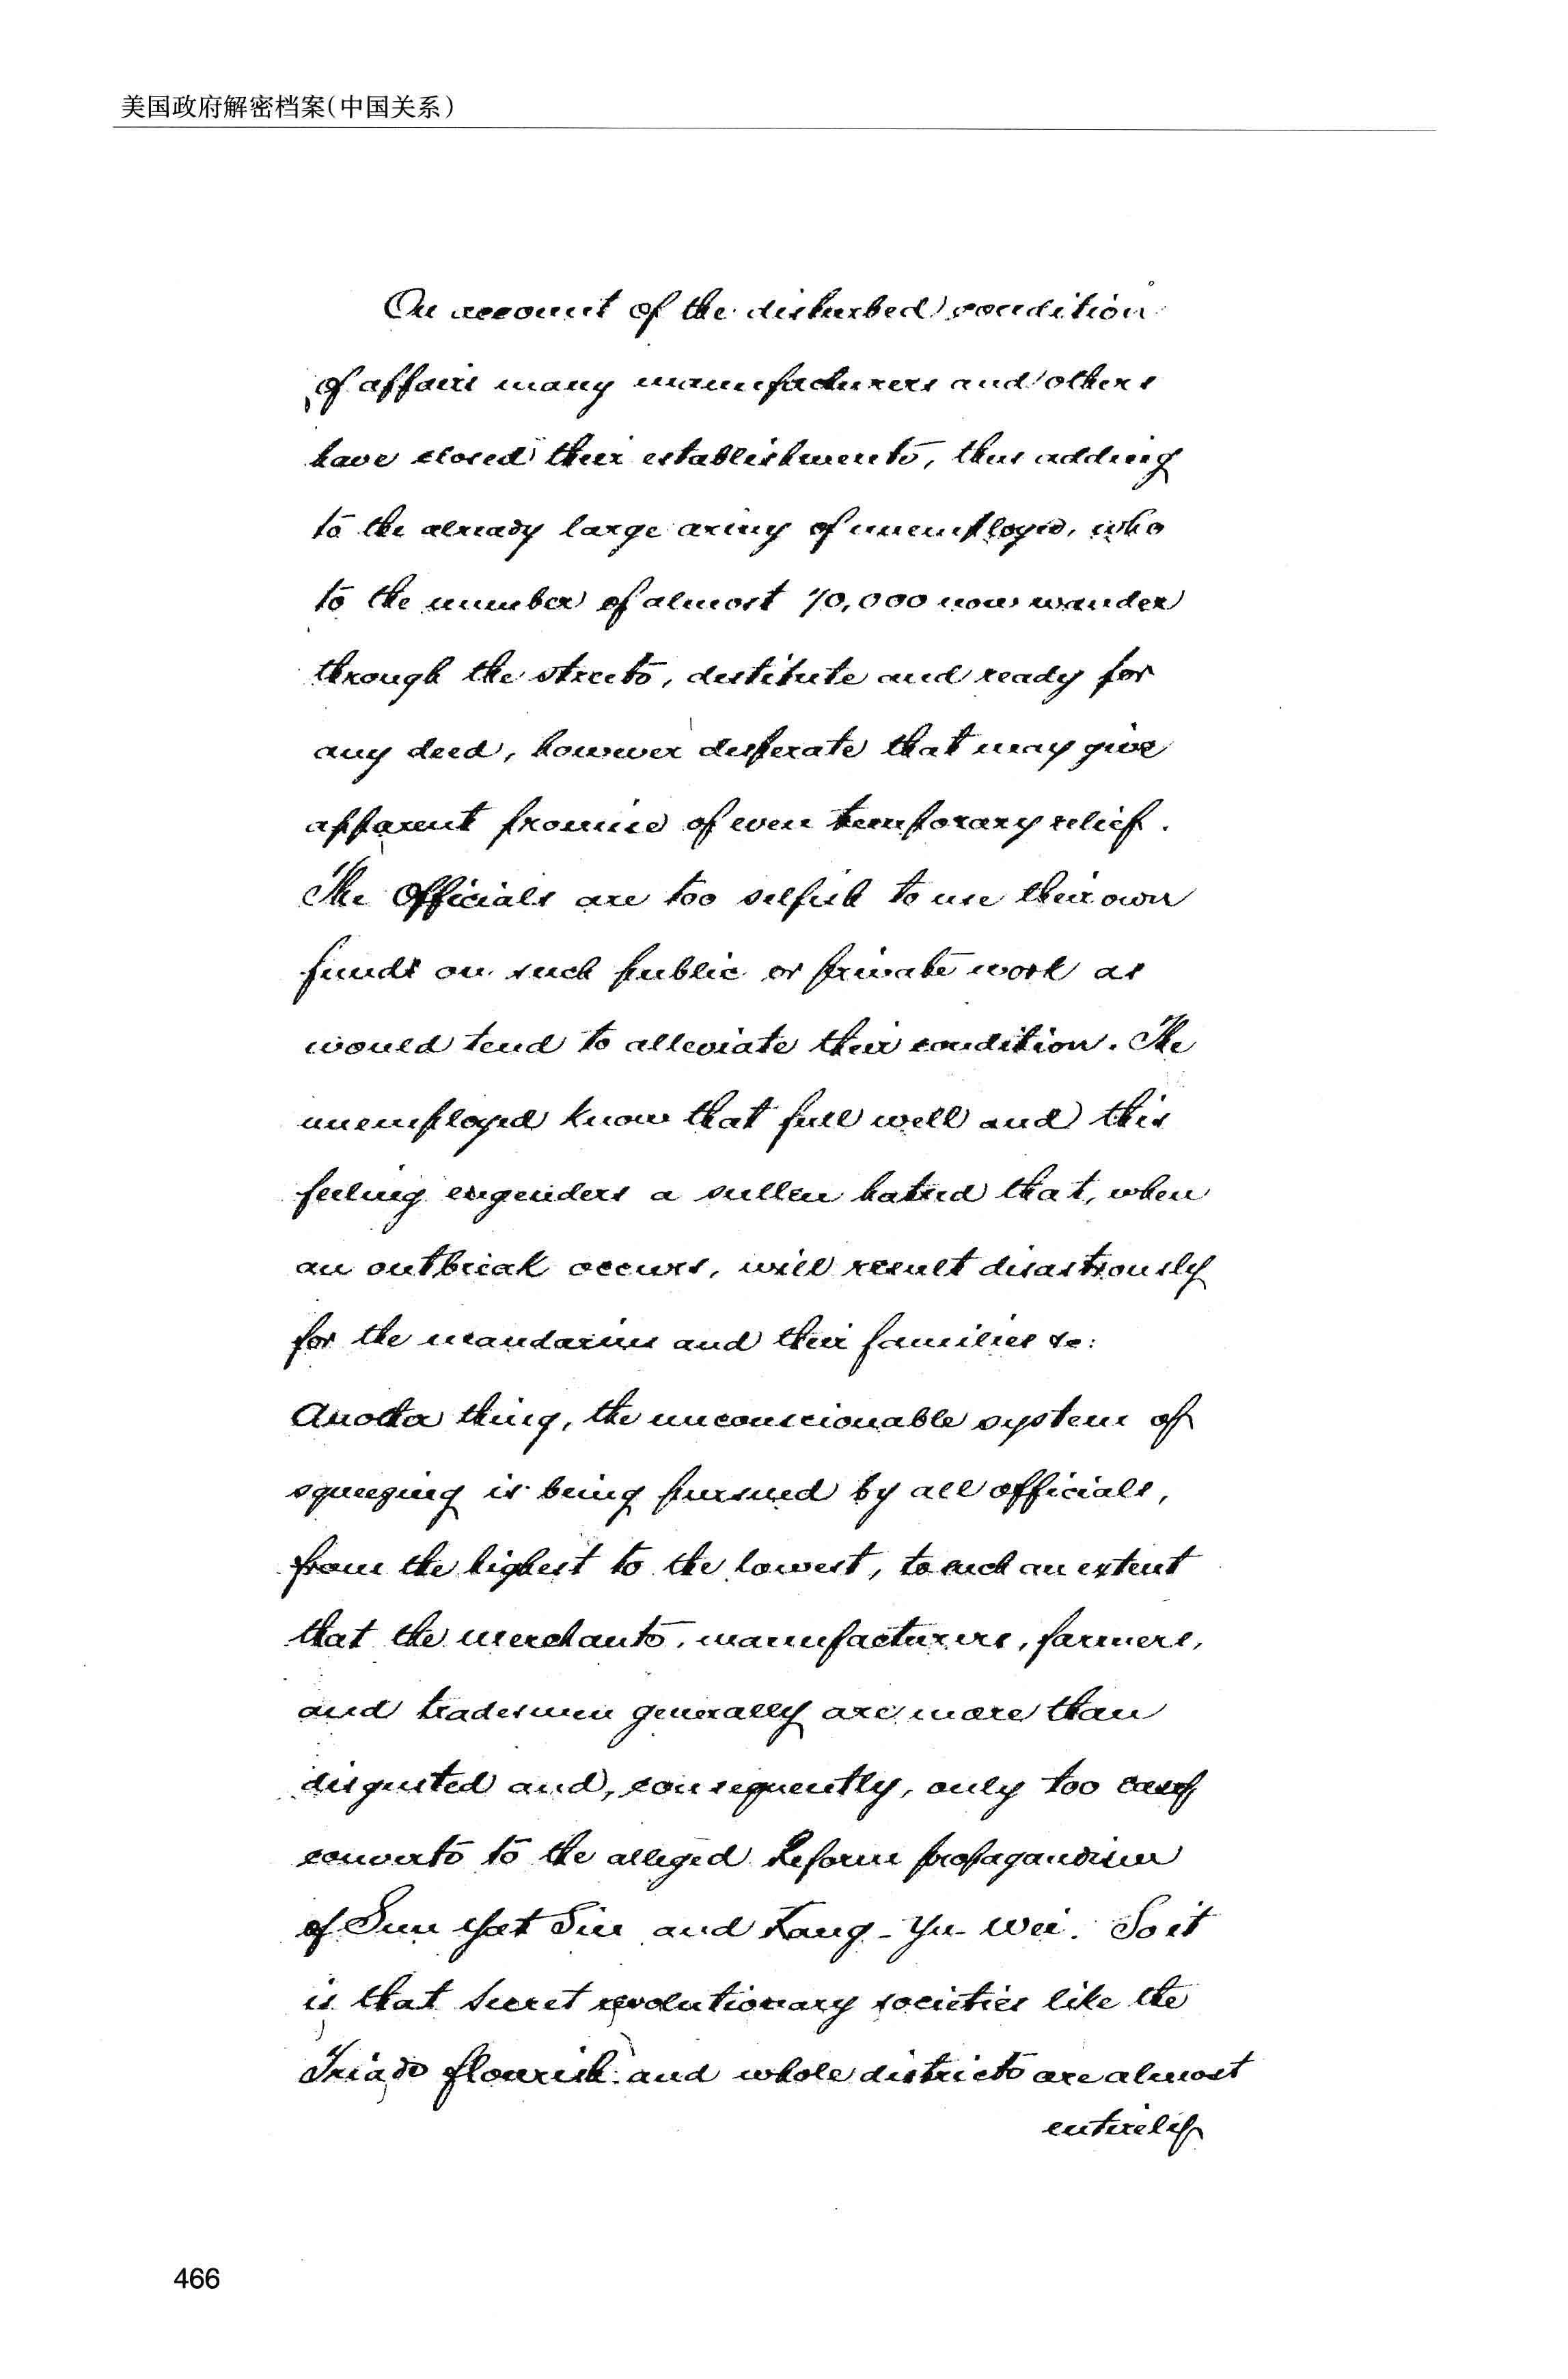 美国政府解密档案(中国关系)
On account of the disturbed condition
of affairs many manufacturers and others
have closed their establishments, thus adding
to the already large army of unemployed, who
to the number of almost 70,000 now wander
through the streets, destitute and ready for
any deed, however desperate that may give
apparent promise of even temporary relief.
The Officials are too selfish to use their own
funds on such public or private work as
would tend to alleviate their condition. The
unemployed know that full well and this
feeling engenders a sullen hatred that, when
an outbreak occurs, will result disastrously
for the mandarins and their families &c:
Another thing, the unconscionable system of
squeezing is being pursued by all officials,
from the highest to the lowest, to such an extent
that the merchants, manufacturers, farmers,
and tradesmen generally are more than
disgusted and, consequently, only too easy
converts to the alleged Reform propagandism
of Sun Yat Sin and Kang-Yu-Wei. So it
is that secret revolutionary societies like the
Triads flourish and whole districts are almost
entirely
466